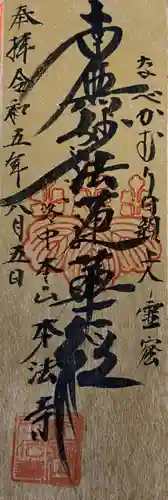 なべかむり日親上人 霊窟
南無妙法蓮華経
洛中本山 本法寺
奉拝 令和五年八月五日